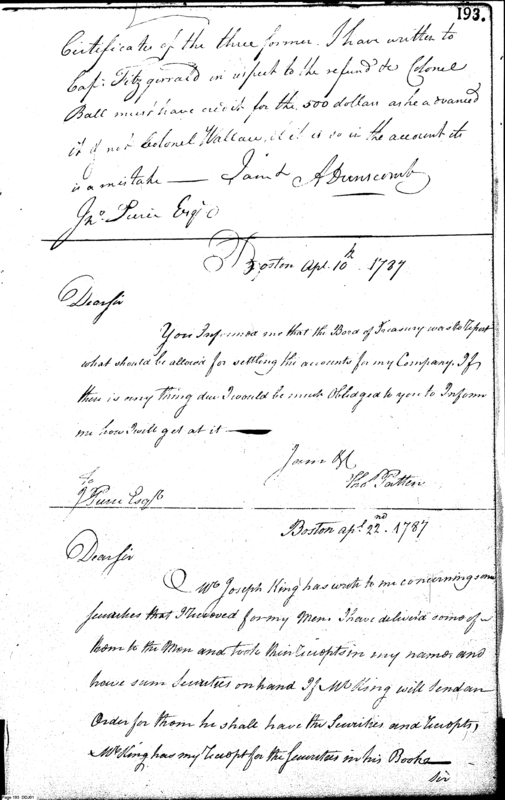 193.
Certificates of the three former. I have written to
Capt. Fitzgerrald in respect to the refund &c Colonel
Ball must have credit for the 500 dollars as he advanced
it & not Colonel Wallace, if it is so in the account it
is a mistake — I am & A Dunscomb
Jno. Pierce Esqr
Boston Apl. 10th. 1787
Dear Sir
You Informed me that the Bord of Treasury was to Report
what should be allowed for settling the accounts for my Company. If
there is any thing due I would be much Oblidged to you to Inform
me how I will get at it —
I am &c
Thos Patten
To
J Pierce Esqr
Boston apl. 22nd. 1787
Dear Sir
Mr. Joseph King has wrote to me concerning some
securities that I Received for my Men. I have deliverd some of
them to the Men and took their Recepts in my name, and
have sum Securities on hand If Mr King will send an
Order for them he shall have the Securities and Recepts,
Mr King has my Recept for the Securities in his Books
Sir
Page 193